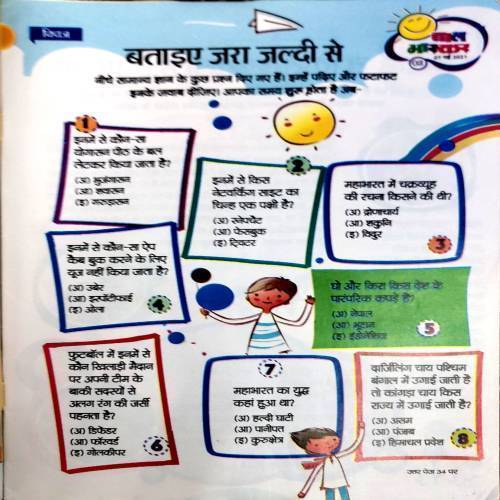 क्विज़
बताइए जरा जल्दी से
बाल
भास्कर
नीचे सामान्य ज्ञान के कुछ प्रश्न दिए गए हैं। इन्हें पढ़िए और फटाफट
इनके जवाब दीजिए। आपका समय शुरू होता है अब-
1
इनमें से कौन-सा
योगासन पीठ के बल
लेटकर किया जाता है?
(अ) भुजंगासन
(आ) शवासन
(इ) गरुड़ासन
2
इनमें से किस
नेटवर्किंग साइट का
चिन्ह एक पक्षी है?
(अ) स्नेपचैट
(आ) फेसबुक
(इ) ट्विटर
महाभारत में चक्रव्यूह
की रचना किसने की थी?
(अ) द्रोणाचार्य
(आ) शकुनि
(इ) विदुर
3
इनमें से कौन-सा ऐप
कैब बुक करने के लिए
यूज नहीं किया जाता है?
(अ) उबेर
(आ) स्पॉटीफाई
(इ) ओला
4
घो और किरा किस देश के
पारंपरिक कपड़े हैं?
(अ) नेपाल
(आ) भूटान
(इ) इंडोनेशिया
5
फुटबॉल में इनमें से
कौन खिलाड़ी मैदान
पर अपनी टीम के
बाकी सदस्यों से
अलग रंग की जर्सी
पहनता है?
(अ) डिफेंडर
(आ) फॉरवर्ड
(इ) गोलकीपर
6
7
महाभारत का युद्ध
कहां हुआ था?
(अ) हल्दी घाटी
(आ) पानीपत
(इ) कुरुक्षेत्र
दार्जिलिंग चाय पश्चिम
बंगाल में उगाई जाती है
तो कांगड़ा चाय किस
राज्य में उगाई जाती है?
(अ) असम
(आ) पंजाब
(इ) हिमाचल प्रदेश
8
उत्तर पेज 34 पर